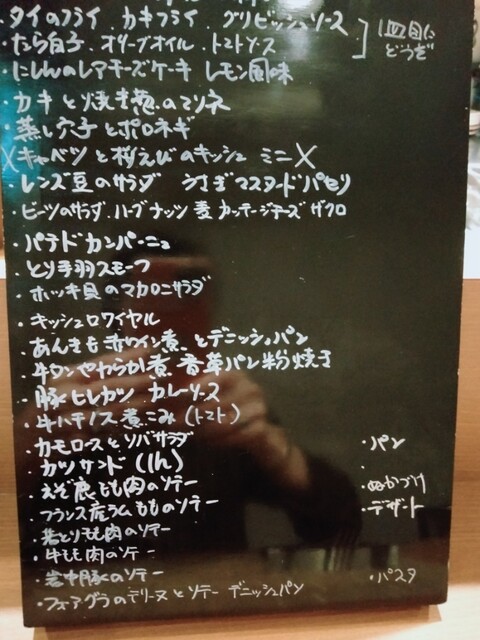 ・タイのフライ カキフライ グリビッシュソース
・たら白子 オリーブオイル トマトソース
1皿目に
どうぞ
・にしんのレアチーズケーキ レモン風味
・カキと焼き葱のマリネ
・蒸し穴子とポロネギ
X キャベツと桜えびのキッシュ ミニ X
・レンズ豆のサラダ うさぎマスタードパセリ
・ビーツのサラダ ハーブ ナッツ 麦 カッテージチーズ ザクロ
・パテドカンパーニュ
・とり手羽スモーク
・ホッキ貝のマカロニサラダ
・キッシュロワイヤル
・あんきも赤ワイン煮とデニッシュパン
・牛タンやわらか煮 香草パン粉焼き
・豚ヒレカツ カレーソース
・牛ハチノス煮こみ(トマト)
・カモロースとソバサラダ
・カツサンド
・えぞ鹿もも肉のソテー
・フランス産うずらもものソテー
・若とりもも肉のソテー
・牛もも肉のソテー
・岩中豚のソテー
・フォアグラのテリーヌとソテー デニッシュパン
・パン
・ぬかづけ
・デザート
・パスタ